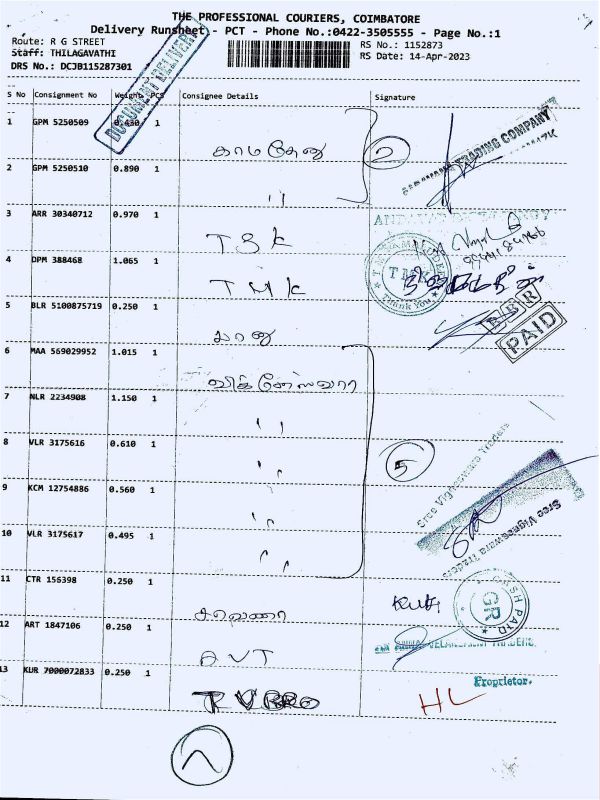 THE PROFESSIONAL COURIERS, COIMBATORE
Delivery Runsheet - PCT - Phone No.:0422-3505555 - Page No.:1
Route: R G STREET
Staff: THILAGAVATHI
DRS No.: DCJB115287301
RS No.: 1152873
RS Date: 14-Apr-2023
DOCUMENT DELIVERY
S No Consignment No Weight PCS Consignee Details Signature
1 GPM 5250509 0.430 1 காமதேனு 2
TRADING COMPANY
2 GPM 5250510 0.890 1 "
3 ARR 30340712 0.970 1
4 DPM 388468 1.065 1 TMK
TMK
Thank You
5 BLR 5100875719 0.250 1 பானு
PAID
6 MAA 569029952 1.015 1 விக்னேஸ்வரா
7 NLR 2234908 1.150 1 "
8 VLR 3175616 0.610 1 " 5
Sree Vigneswara Traders
9 KCM 12754886 0.560 1 "
Sree Vigneswara Traders
10 VLR 3175617 0.495 1 "
11 CTR 156398 0.250 1
CASH PAID
GR
12 ART 1847106 0.250 1 AVT
TRADERS.
Proprietor.
13 KUR 7000072833 0.250 1
HL